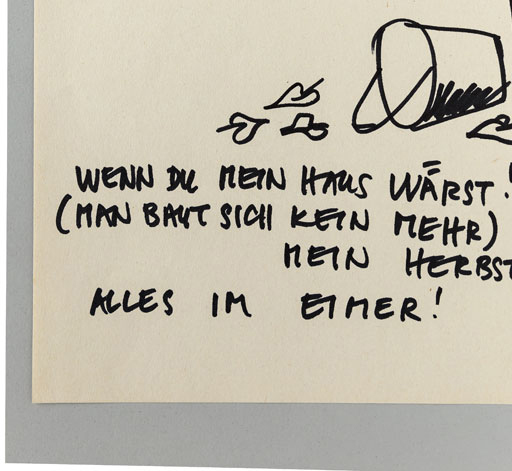 WENN DU MEIN HAUS WÄRST!
(MAN BAUT SICH KEIN MEHR)
MEIN HERBST
ALLES IM EIMER!